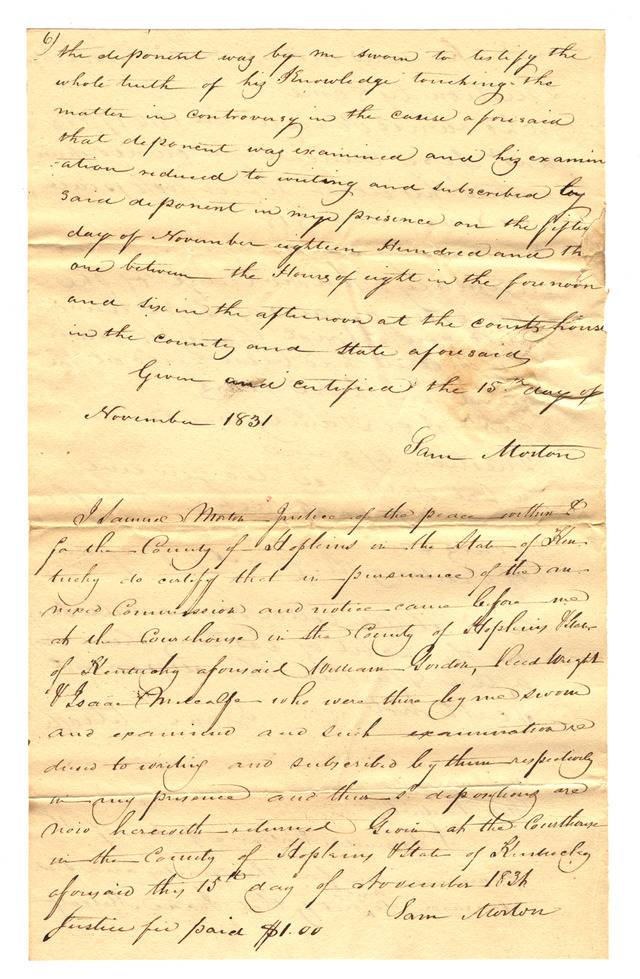 6)
the deponent was by me sworn to testify the
whole truth of his Knowledge touching the
matter in controversy in the cause aforesaid
that deponent was examined and his examin
-ation reduced to writing and subscribed by
said deponent in my presence on the
day of November eighteen Hundred and th
one between the Hours of eight in the forenoon
and six in the afternoon at the courthouse
in the county and State aforesaid
Given and certified the 15th day of
November 1831
Sam Morton
I Samuel Morton Justice of the peace within &
for the County of Hopkins in the State of Ken
tucky do certify that in pursuance of the an
nexed Commission and notice came before me
at the Courthouse in the County of Hopkins & State
of Kentucky aforesaid William Gordon, Reed Wright
& Isaac Metcalfe who were there by me sworn
and examined and such examination re
duced to writing and subscribed by them respectively
in my presence and their sd depositions are
now herewith returned Given at the Courthouse
in the County of Hopkins & State of Kentucky
aforesaid this 15th day of November 1831
Sam Morton
Justice fee paid $1.00